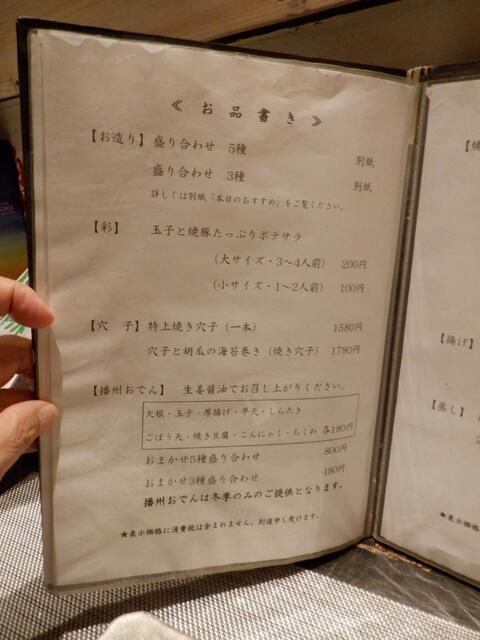 ≪ お品書き ≫
【お造り】 盛り合わせ 5種 別紙
盛り合わせ 3種 別紙
詳しくは別紙「本日のおすすめ」をご覧ください。
【彩】 玉子と焼豚たっぷりポテサラ
(大サイズ・3~4人前) 200円
(小サイズ・1~2人前) 100円
【穴 子】 特上焼き穴子 (一本) 1580円
穴子と胡瓜の海苔巻き (焼き穴子) 1780円
【播州おでん】 生姜醤油でお召し上がりください。
大根・玉子・厚揚げ・平天・しらたき
ごぼう天・焼き豆腐・こんにゃく・ちくわ 各180円
おまかせ5種盛り合わせ 800円
おまかせ3種盛り合わせ 480円
播州おでんは冬季のみのご提供となります。
★表示価格に消費税は含まれません。別途申し受けます。
【揚げ】
【蒸し】